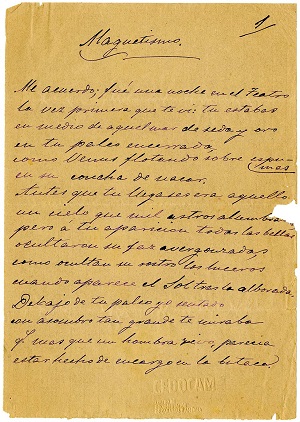 1
Magnetismo.
Me acuerdo; fué una noche en el Teatro
la vez primera que te vi: tu estabas
en medio de aquel mar de seda y oro
en tu palco encerrada,
como Venus flotando sobre espumas
en su concha de nacar.
Antes que tu llegases era aquello
un cielo que mil astros alumbra
pero a tu aparicion todas las bellas
ocultaron su faz avergonzadas,
como ocultan su rostro los luceros
cuando aparece el Sol tras la alborada.
Debajo de tu palco yo sentado
con asombro tan grande te miraba
que mas que un hombre vivo, parecia
estar hecho de encargo en la butaca.
CEDOCAM